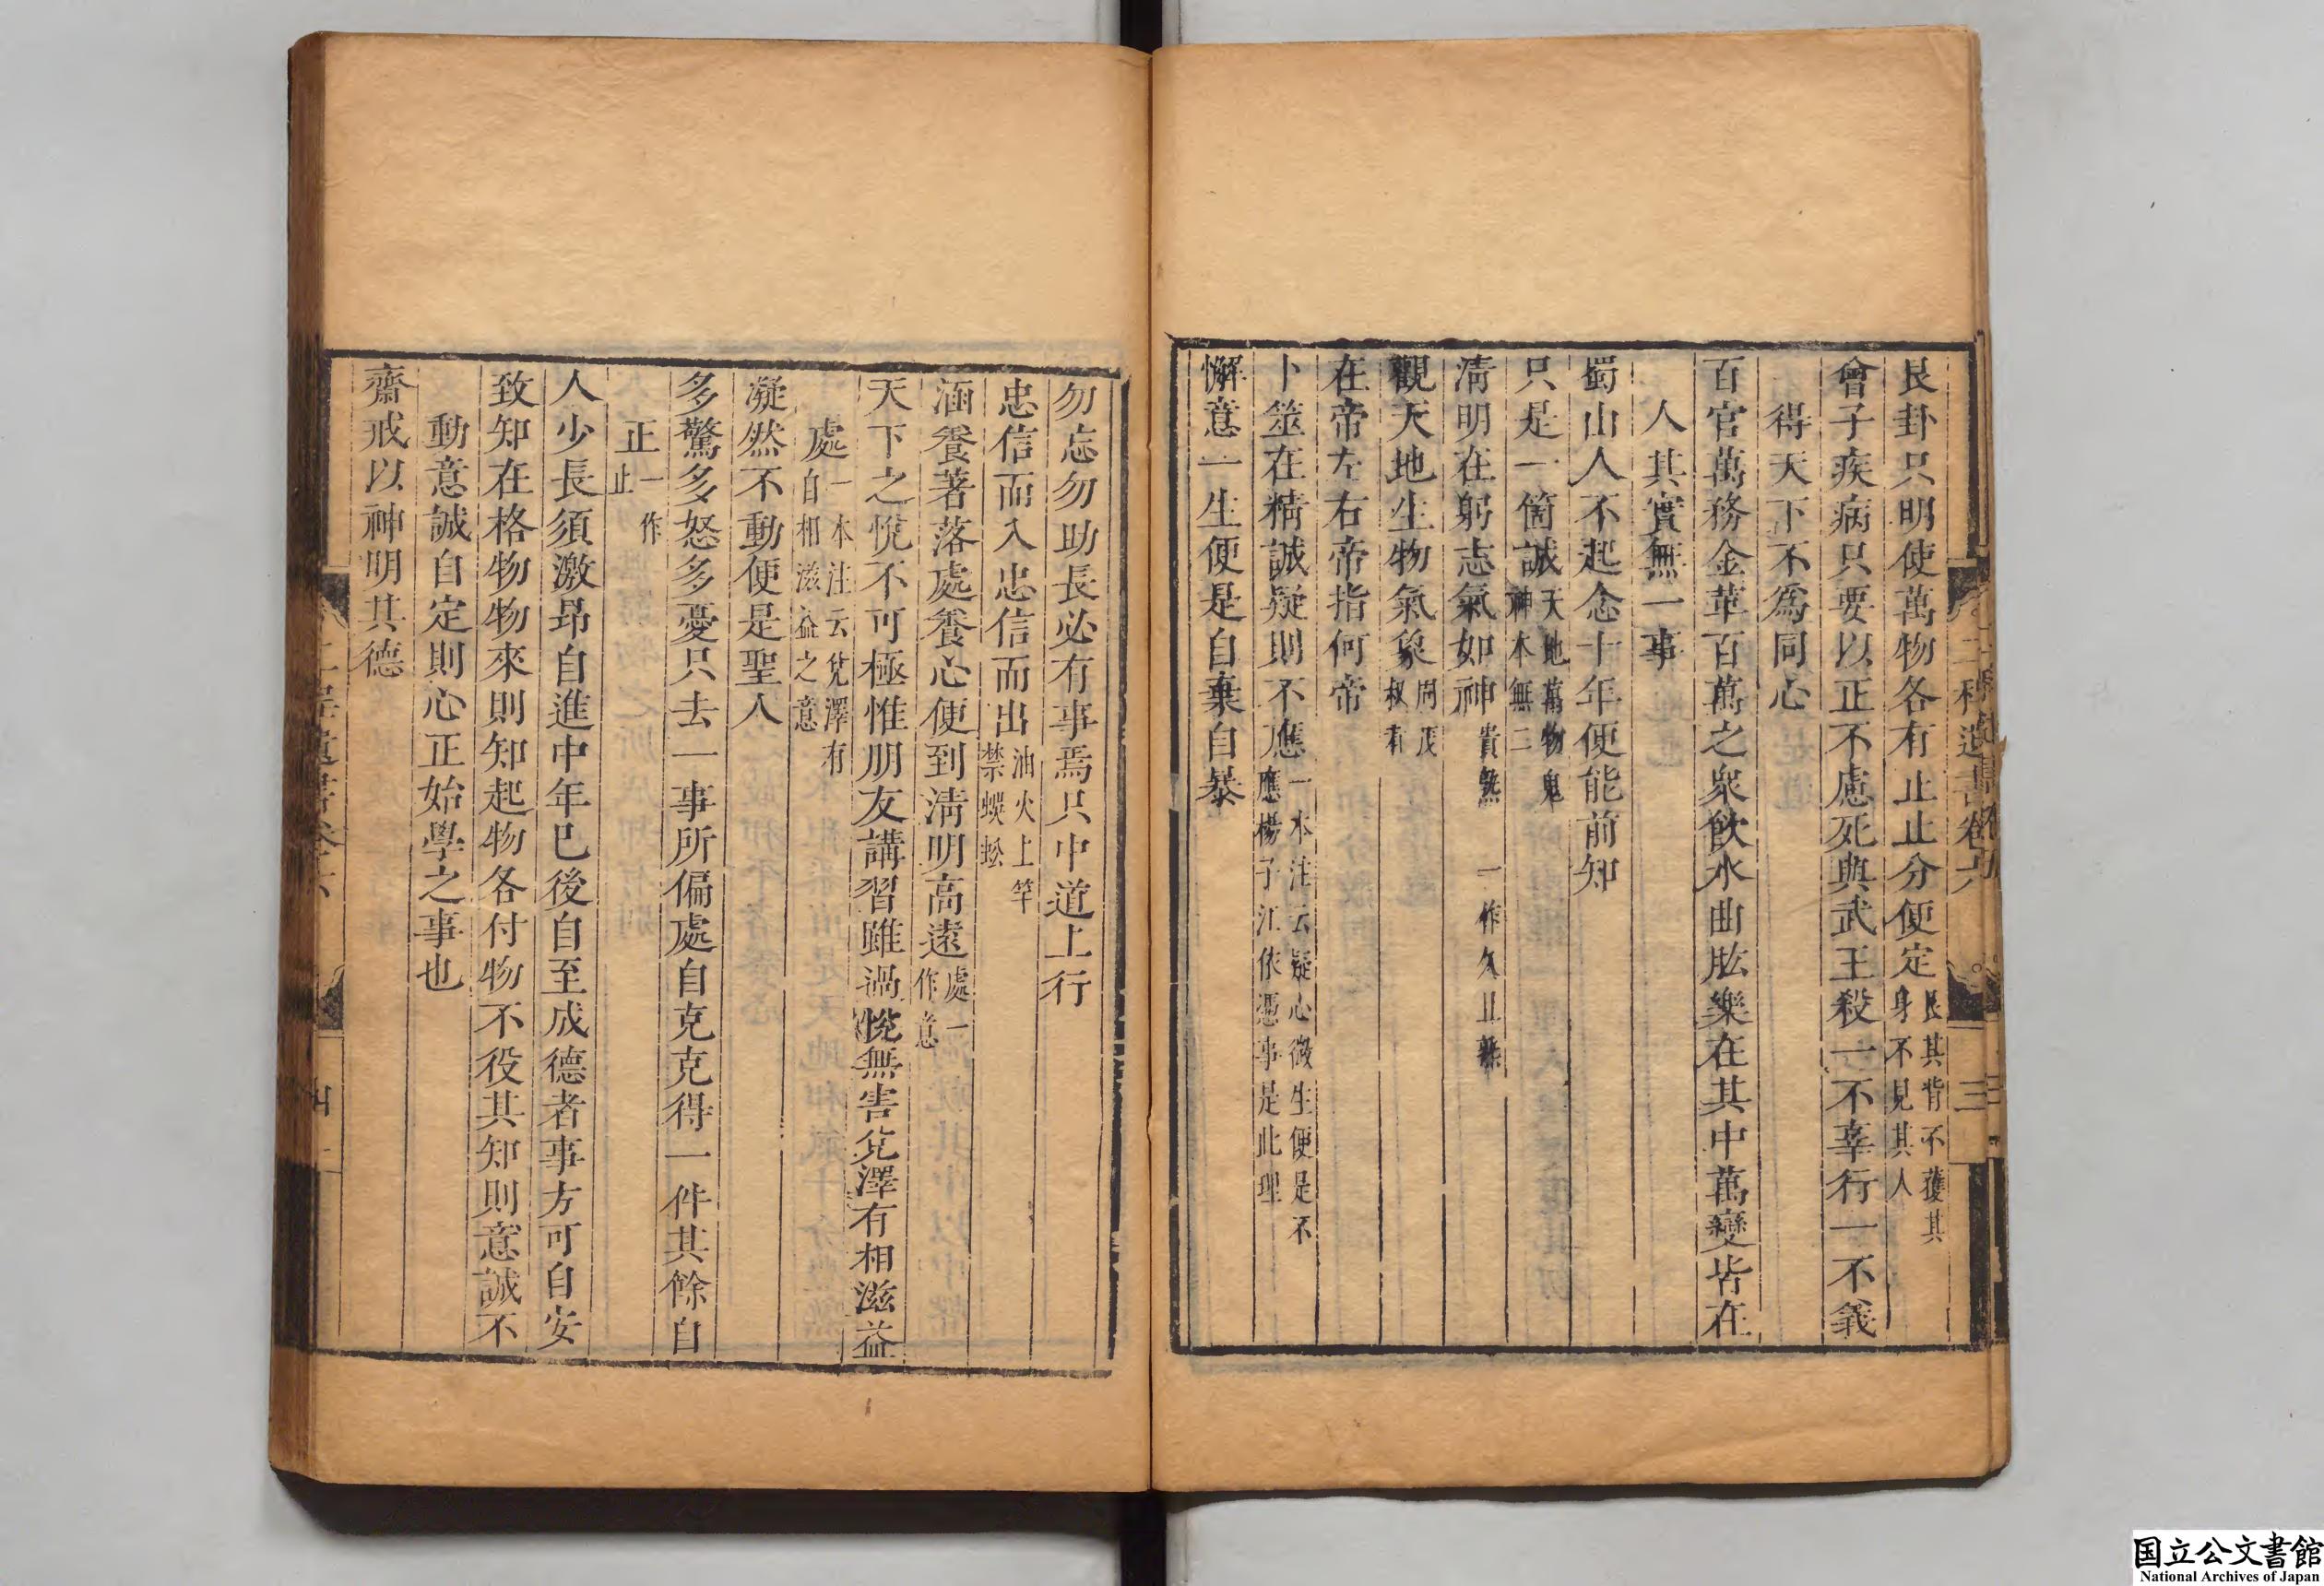 艮卦只明使萬物各有止止分便定艮其背不獲其身不見其人
曾子疾病只要以正不慮死與武王殺一不辜行一不義
得天下不爲同心
百官萬務金革百萬之衆飲水曲肱樂在其中萬變皆在
人其實無一事
蜀山人不起念十年便能前知
只是一箇誠天地萬物鬼神本無二
淸明在躬志氣如神貴熟 一作久且熟
觀天地生物氣象周茂叔看
在帝左右帝指何帝
卜筮在精誠疑則不應一本注云疑心微生便是不應楊子江依憑事是此理
懈意一生便是自棄自暴
勿忘勿助長必有事焉只中道上行
忠信而入忠信而出油火上竿禁蜈蚣
涵養著落處養心便到淸明高遠處一作意
天下之悅不可極惟朋友講習雖過悅無害兌澤有相滋益
處一本注云兌澤有自相滋益之意
凝然不動便是聖人
多驚多怒多憂只去一事所偏處自克克得一件其餘自
正一作止
人少長須激昻自進中年已後自至成德者事方可自安
致知在格物物來則知起物各付物不役其知則意誠不
動意誠自定則心正始學之事也
齋戒以神明其德
国立公文書館
National Archives of Japan